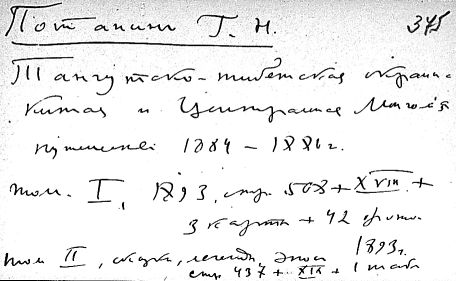 Потанин Г. Н. 375
Тангутско-тибетская окраина
Китая и Центральная Монголия
путешествие 1884 – 1886 г.
том. I, 1893, стр. 568 + XVIII +
3 карты + 42 фото.
том II, сказки, легенды, эпос 1893,
стр. 437 + XIX + 1 табл